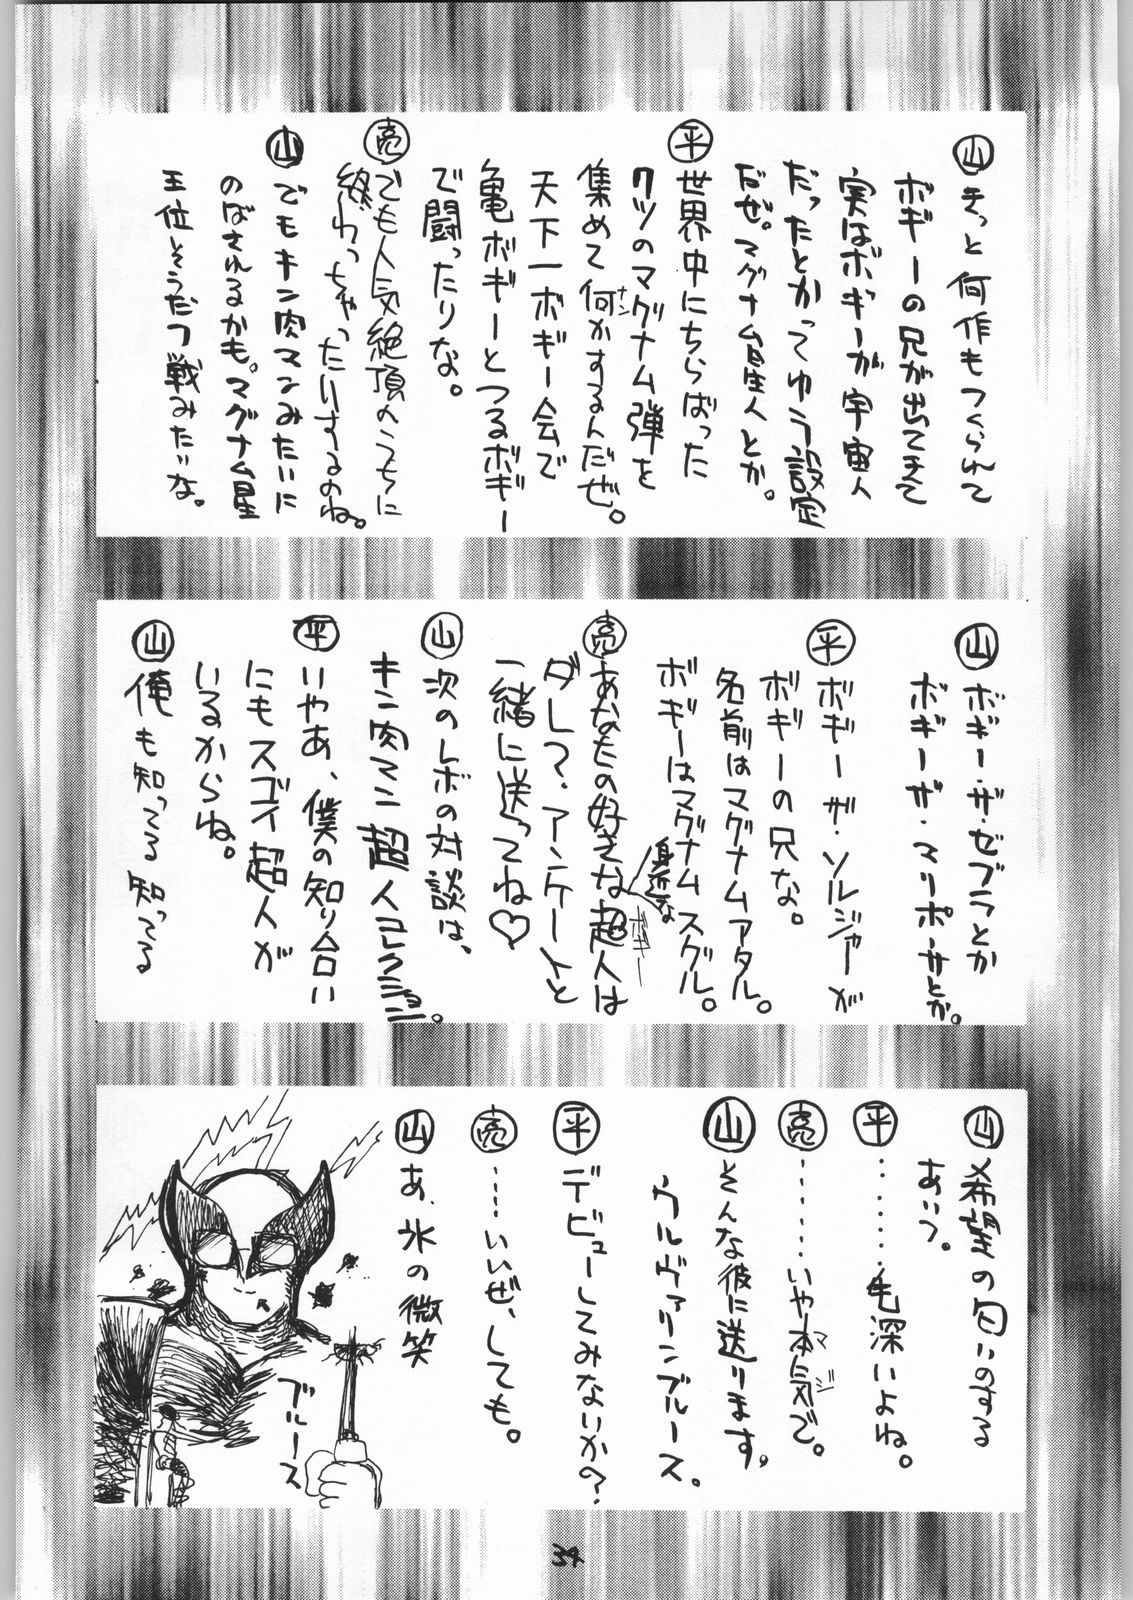 山 きっと何作もつくられて
ボギーの兄が出てきて
実はボギーが宇宙人
だったとかってゆう設定
だぜ。マグナム星人とか。
平 世界中にちらばった
7ツのマグナム弾を
集めて何かするんだぜ。
ナン
天下一ボギー会で
亀ボギーとつるボギー
で闘ったりな。
亮 でも人気絶頂のうちに
終わっちゃったりするのね。
山 でもキン肉マンみたいに
のばされるかも。マグナム星
王位そうだつ戦みたいな。
山 ボギー・ザ・ゼブラとか
ボギーザ・マリポーサとか。
平 ボギーザ・ソルジャーが
ボギーの兄な。
名前はマグナムアタル。
ボギーはマグナムスグル。
亮 あなたの好きな超人は
身近な
ボギー
ダレ?アンケートと
一緒に送ってね♡
山 次のレボの対談は、
キン肉マン超人コレクション。
平 いやあ、僕の知り合い
にもスゴイ超人が
いるからね。
山 俺も知ってる知ってる
山 希望の匂いのする
あいつ。
平 ………毛深いよね。
亮 ………いや本気で。
マジ
山 そんな彼に送ります。
ウルヴァリンブルース。
平 デビューしてみないか?
亮 ……いいぜ、しても。
山 あ、氷の微笑
ブルース
34